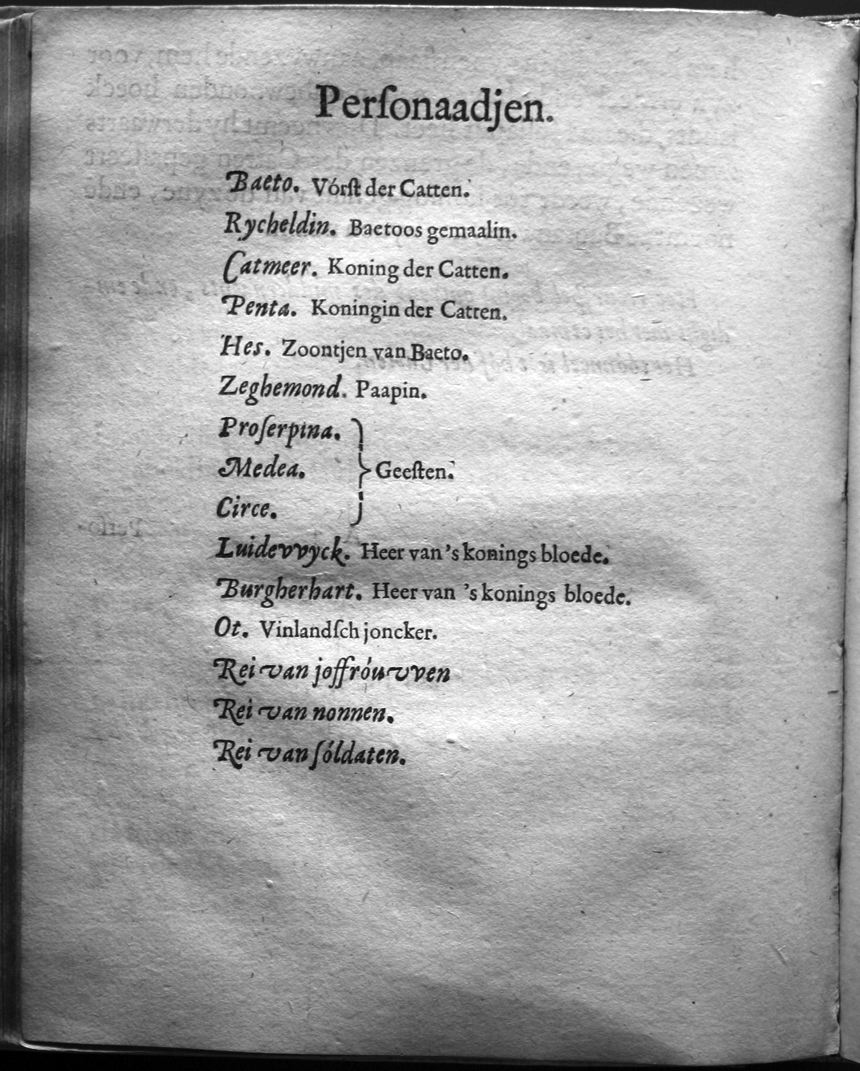 Perſonaadjen.
Baeto. Vórſt der Catten.
Rycheldin. Baetoos gemaalin.
Catmeer. Koning der Catten.
Penta. Koningin der Catten.
Hes. Zoontjen van Baeto.
Zeghemond. Paapin.
Proſerpina.
Medea. } Geeſten.
Circe.
Luidevvyck. Heer van 's konings bloede.
Burgherhart. Heer van 's konings bloede.
Ot. Vinlandſch joncker.
Rei van joffróuvven
Rei van nonnen.
Rei van ſóldaten.